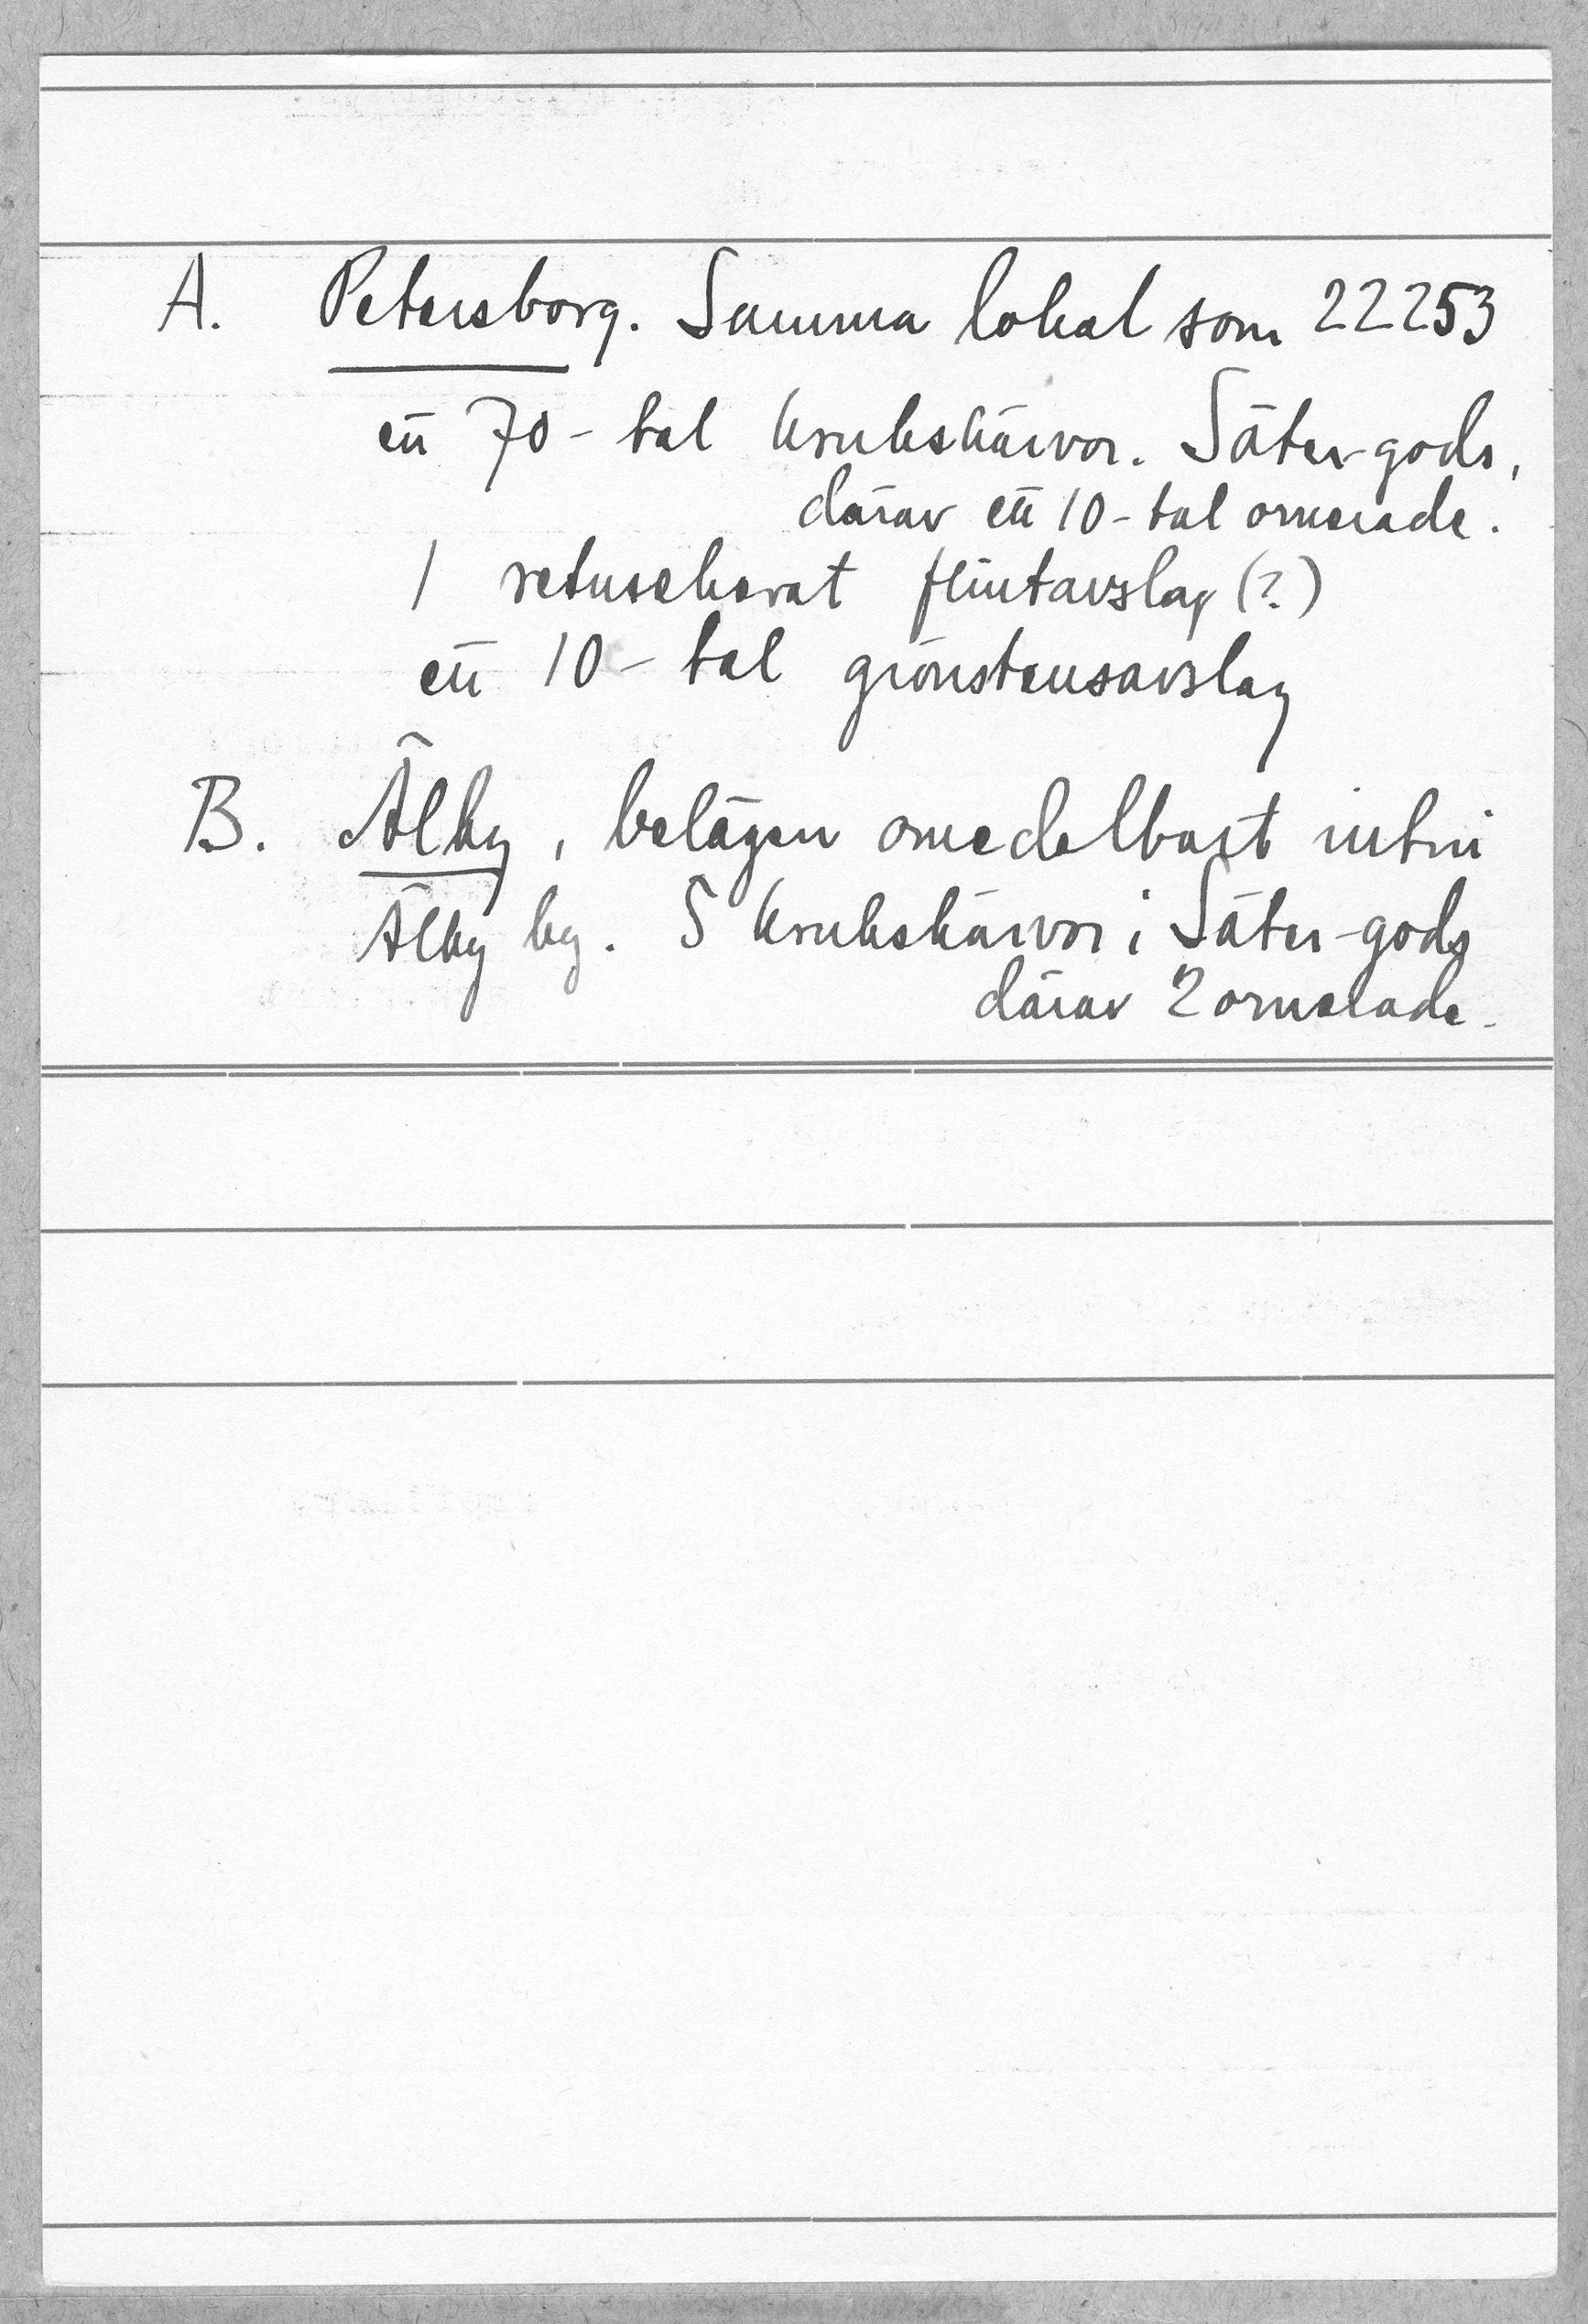 A. Petersborg. Samma lokal som 22253
ett 70-tal krukskärvor. Säter-gods,
därav ett 10-tal ornerade.
1 retuscherat flintavslag (?)
ett 10-tal grönstensavslag
B. Älby, belägen omedelbart intill
Älby by. 5 krukskärvor i Säter-gods
därav 2 ornerade.